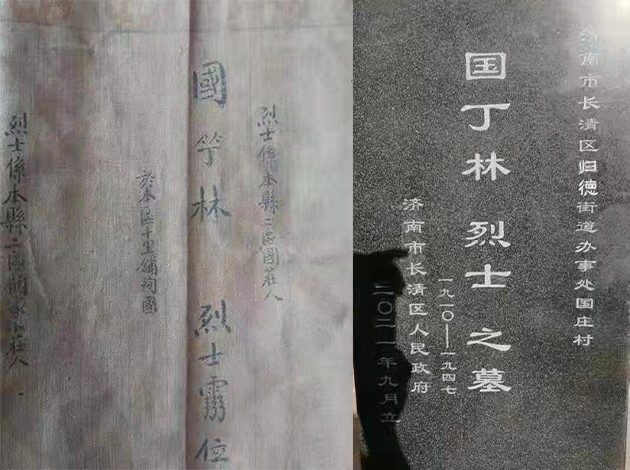 烈士係本縣二區國莊人
國 林 烈士靈位
於本區十里鋪殉國
烈士係本縣二區 家 莊人
济南市长清区归德街道办事处国庄村
国丁林 烈士 之墓
一九一〇—一九四七
济南市长清区人民政府
二〇二一年九月立